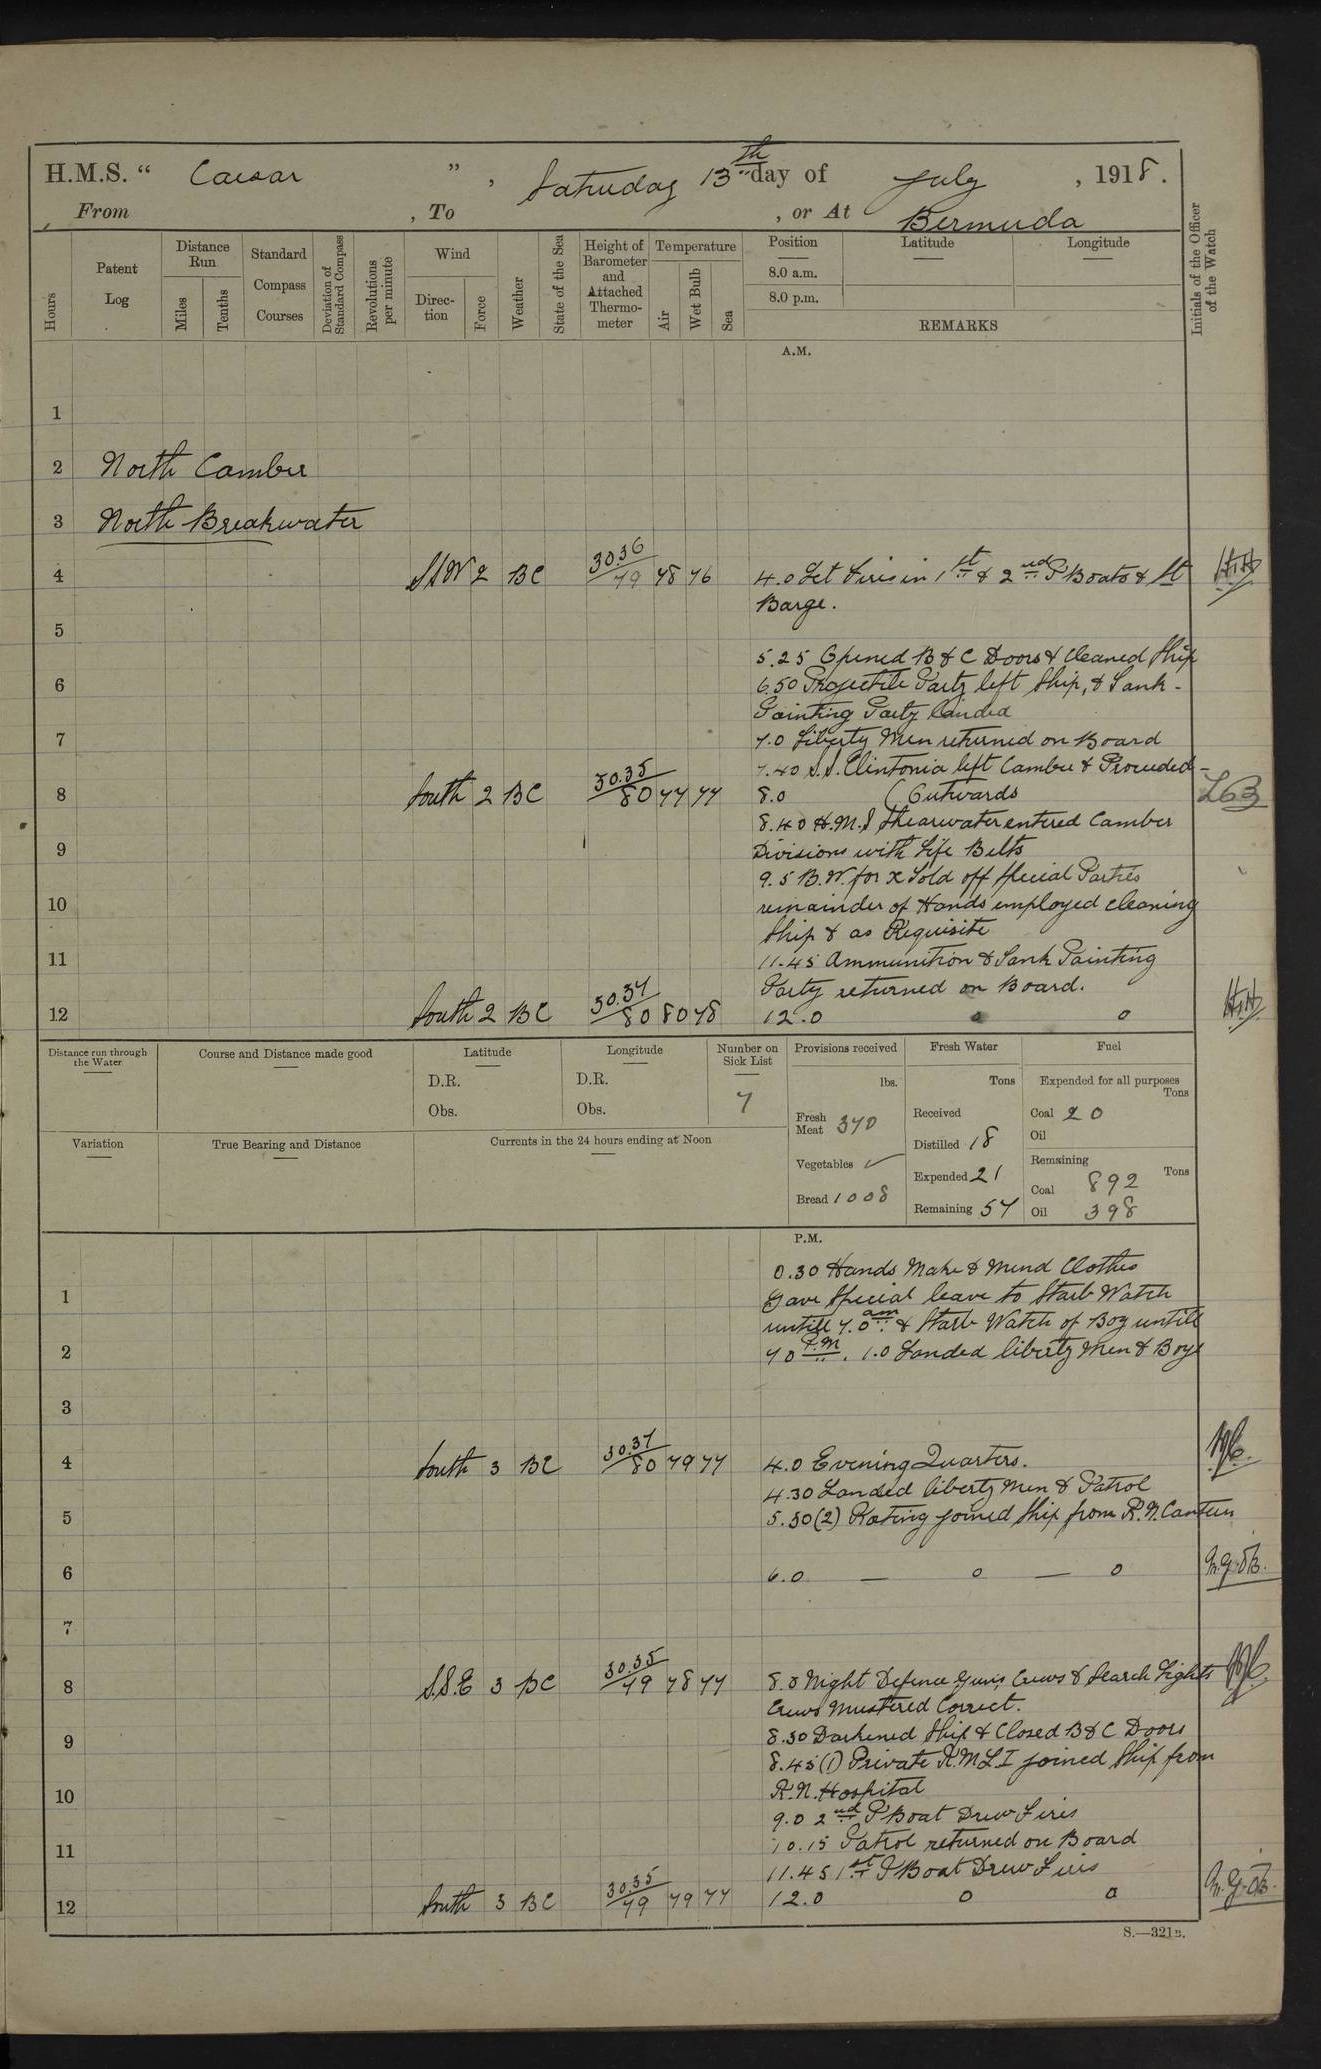 H.M.S. “ Caesar ”, Saturday 13th day of July, 1918.
From , To , or At Bermuda
Hours
Patent Log
Distance Run
Miles
Tenths
Standard Compass Courses
Deviation of Standard Compass
Revolutions per minute
Wind
Direction
Force
Weather
State of the Sea
Height of Barometer and Attached Thermometer
Temperature
Air
Wet Bulb
Sea
Position
8.0 a.m.
8.0 p.m.
Latitude
Longitude
REMARKS
Initials of the Officer of the Watch
A.M.
1
2 North Camber
3 North Breakwater
4 SSW 2 BC 30.36 79 78 76 4.0 Let Fires in 1st & 2nd P Boats & St
Barge.
5
5.25 Opened B & C Doors & Cleaned Ship
6 6.50 Projectile Party left Ship, & Tank-
Painting Party landed
7 7.0 Liberty Men returned on Board
7.40 S.S. Clintonia left Camber & Proceeded -
8 South 2 BC 30.35 80 77 77 8.0 (Outwards
8.40 H.M.S Shearwater entered Camber
9 Divisions with Life Belts
9.5 B.W. for x Told off Special Parties
10 remainder of Hands employed cleaning
Ship & as Requisite
11 11.45 Ammunition & Tank Painting
Party returned on Board.
12 South 2 BC 30.37 80 80 78 12.0 o o
Distance run through the Water
Course and Distance made good
Latitude
D.R.
Obs.
Longitude
D.R.
Obs.
Number on Sick List
7
Variation
True Bearing and Distance
Currents in the 24 hours ending at Noon
Provisions received
lbs.
Fresh Meat 370
Vegetables ✓
Bread 1008
Fresh Water
Tons
Received
Distilled 18
Expended 21
Remaining 57
Fuel
Expended for all purposes
Tons
Coal 20
Oil
Remaining
Tons
Coal 892
Oil 398
P.M.
0.30 Hands Make & Mend Clothes
1 Gave Special leave to Starb Watch
untill 7.0 am & Starb Watch of Boy untill
2 7 0 P.M. 1.0 Landed liberty Men & Boys
3
4 South 3 BC 30.37 80 79 77 4.0 Evening Quarters.
4.30 Landed liberty men & Patrol
5 5.30 (2) Rating joined Ship from R.N. Canteen
6 6.0 — o — o
7
8 S.S.E 3 BC 30.35 79 78 77 8.0 Night Defence Guns Crews & Search Lights
Crews Mustered Correct.
9 8.30 Darkened Ship & Closed B & C Doors
8.45 (1) Private R.M.L.I joined Ship from
10 R.N. Hospital
9.0 2nd P Boat Drew Fires
11 10.15 Patrol returned on Board
11.45 1st P Boat Drew Fires
12 South 3 BC 30.35 79 79 77 12.0 o o
S.—321B.